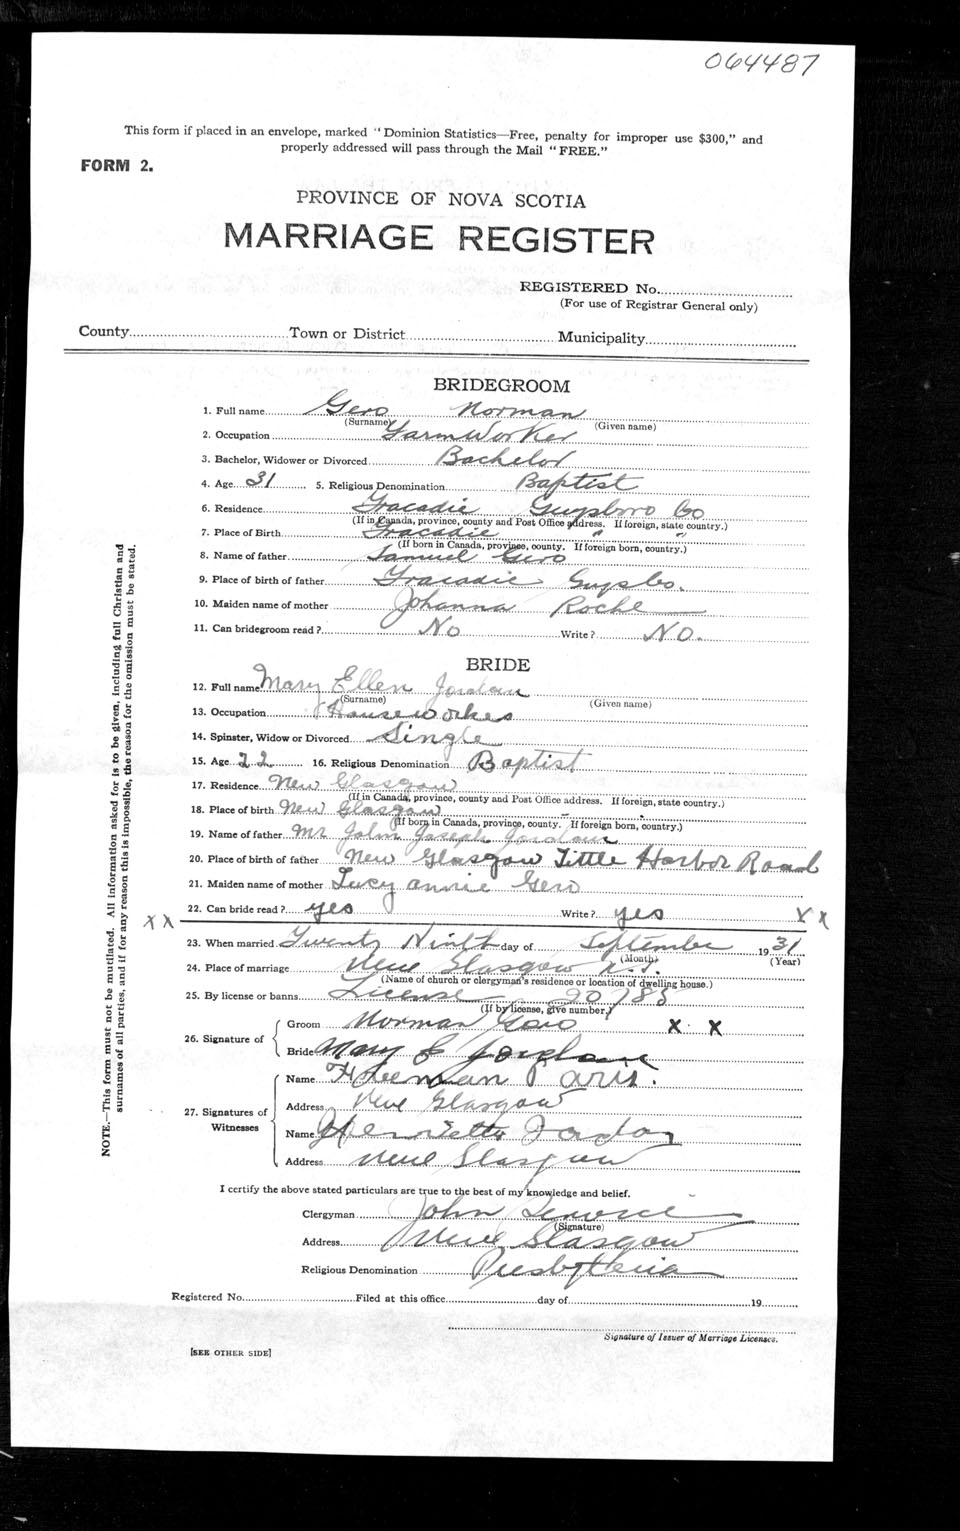 064487
This form if placed in an envelope, marked "Dominion Statistics—Free, penalty for improper use $300," and
properly addressed will pass through the Mail "FREE."
FORM 2.
PROVINCE OF NOVA SCOTIA
MARRIAGE REGISTER
REGISTERED No.
(For use of Registrar General only)
County Town or District Municipality
BRIDEGROOM
1. Full name Gero Norman
(Surname) (Given name)
2. Occupation Farm Worker
3. Bachelor, Widower or Divorced Bachelor
4. Age 31 5. Religious Denomination Baptist
6. Residence Tracadie Guysboro Co
(If in Canada, province, county and Post Office address. If foreign, state country.)
7. Place of Birth Tracadie " "
(If born in Canada, province, county. If foreign born, country.)
8. Name of father Samuel Gero
9. Place of birth of father Tracadie Guysbo.
10. Maiden name of mother Johanna Roche
11. Can bridegroom read? No Write? No.
BRIDE
12. Full name Mary Ellen Jordan
(Surname) (Given name)
13. Occupation Houseworker
14. Spinster, Widow or Divorced Single
15. Age 22 16. Religious Denomination Baptist
17. Residence New Glasgow
(If in Canada, province, county and Post Office address. If foreign, state country.)
18. Place of birth New Glasgow
(If born in Canada, province, county. If foreign born, country.)
19. Name of father Mr John Joseph Jordan
20. Place of birth of father New Glasgow Little Harbor Road
21. Maiden name of mother Lucy annie Gero
22. Can bride read? yes Write? yes
X X X X
23. When married Twenty Ninth day of September 1931
(Month) (Year)
24. Place of marriage New Glasgow N.S.
(Name of church or clergyman's residence or location of dwelling house.)
25. By license or banns License 20785
(If by license, give number.)
26. Signature of
Groom Norman Gero X X
Bride Mary E Jordan
27. Signatures of
Witnesses
Name Paris.
Address New Glasgow
Name Henrietta Jordan
Address New Glasgow
I certify the above stated particulars are true to the best of my knowledge and belief.
Clergyman John
(Signature)
Address New Glasgow
Religious Denomination Presbyterian
Registered No. Filed at this office day of 19
Signature of Issuer of Marriage Licenses.
[SEE OTHER SIDE]
NOTE.—This form must not be mutilated. All information asked for is to be given, including full Christian and
surnames of all parties, and if for any reason this is impossible, the reason for the omission must be stated.